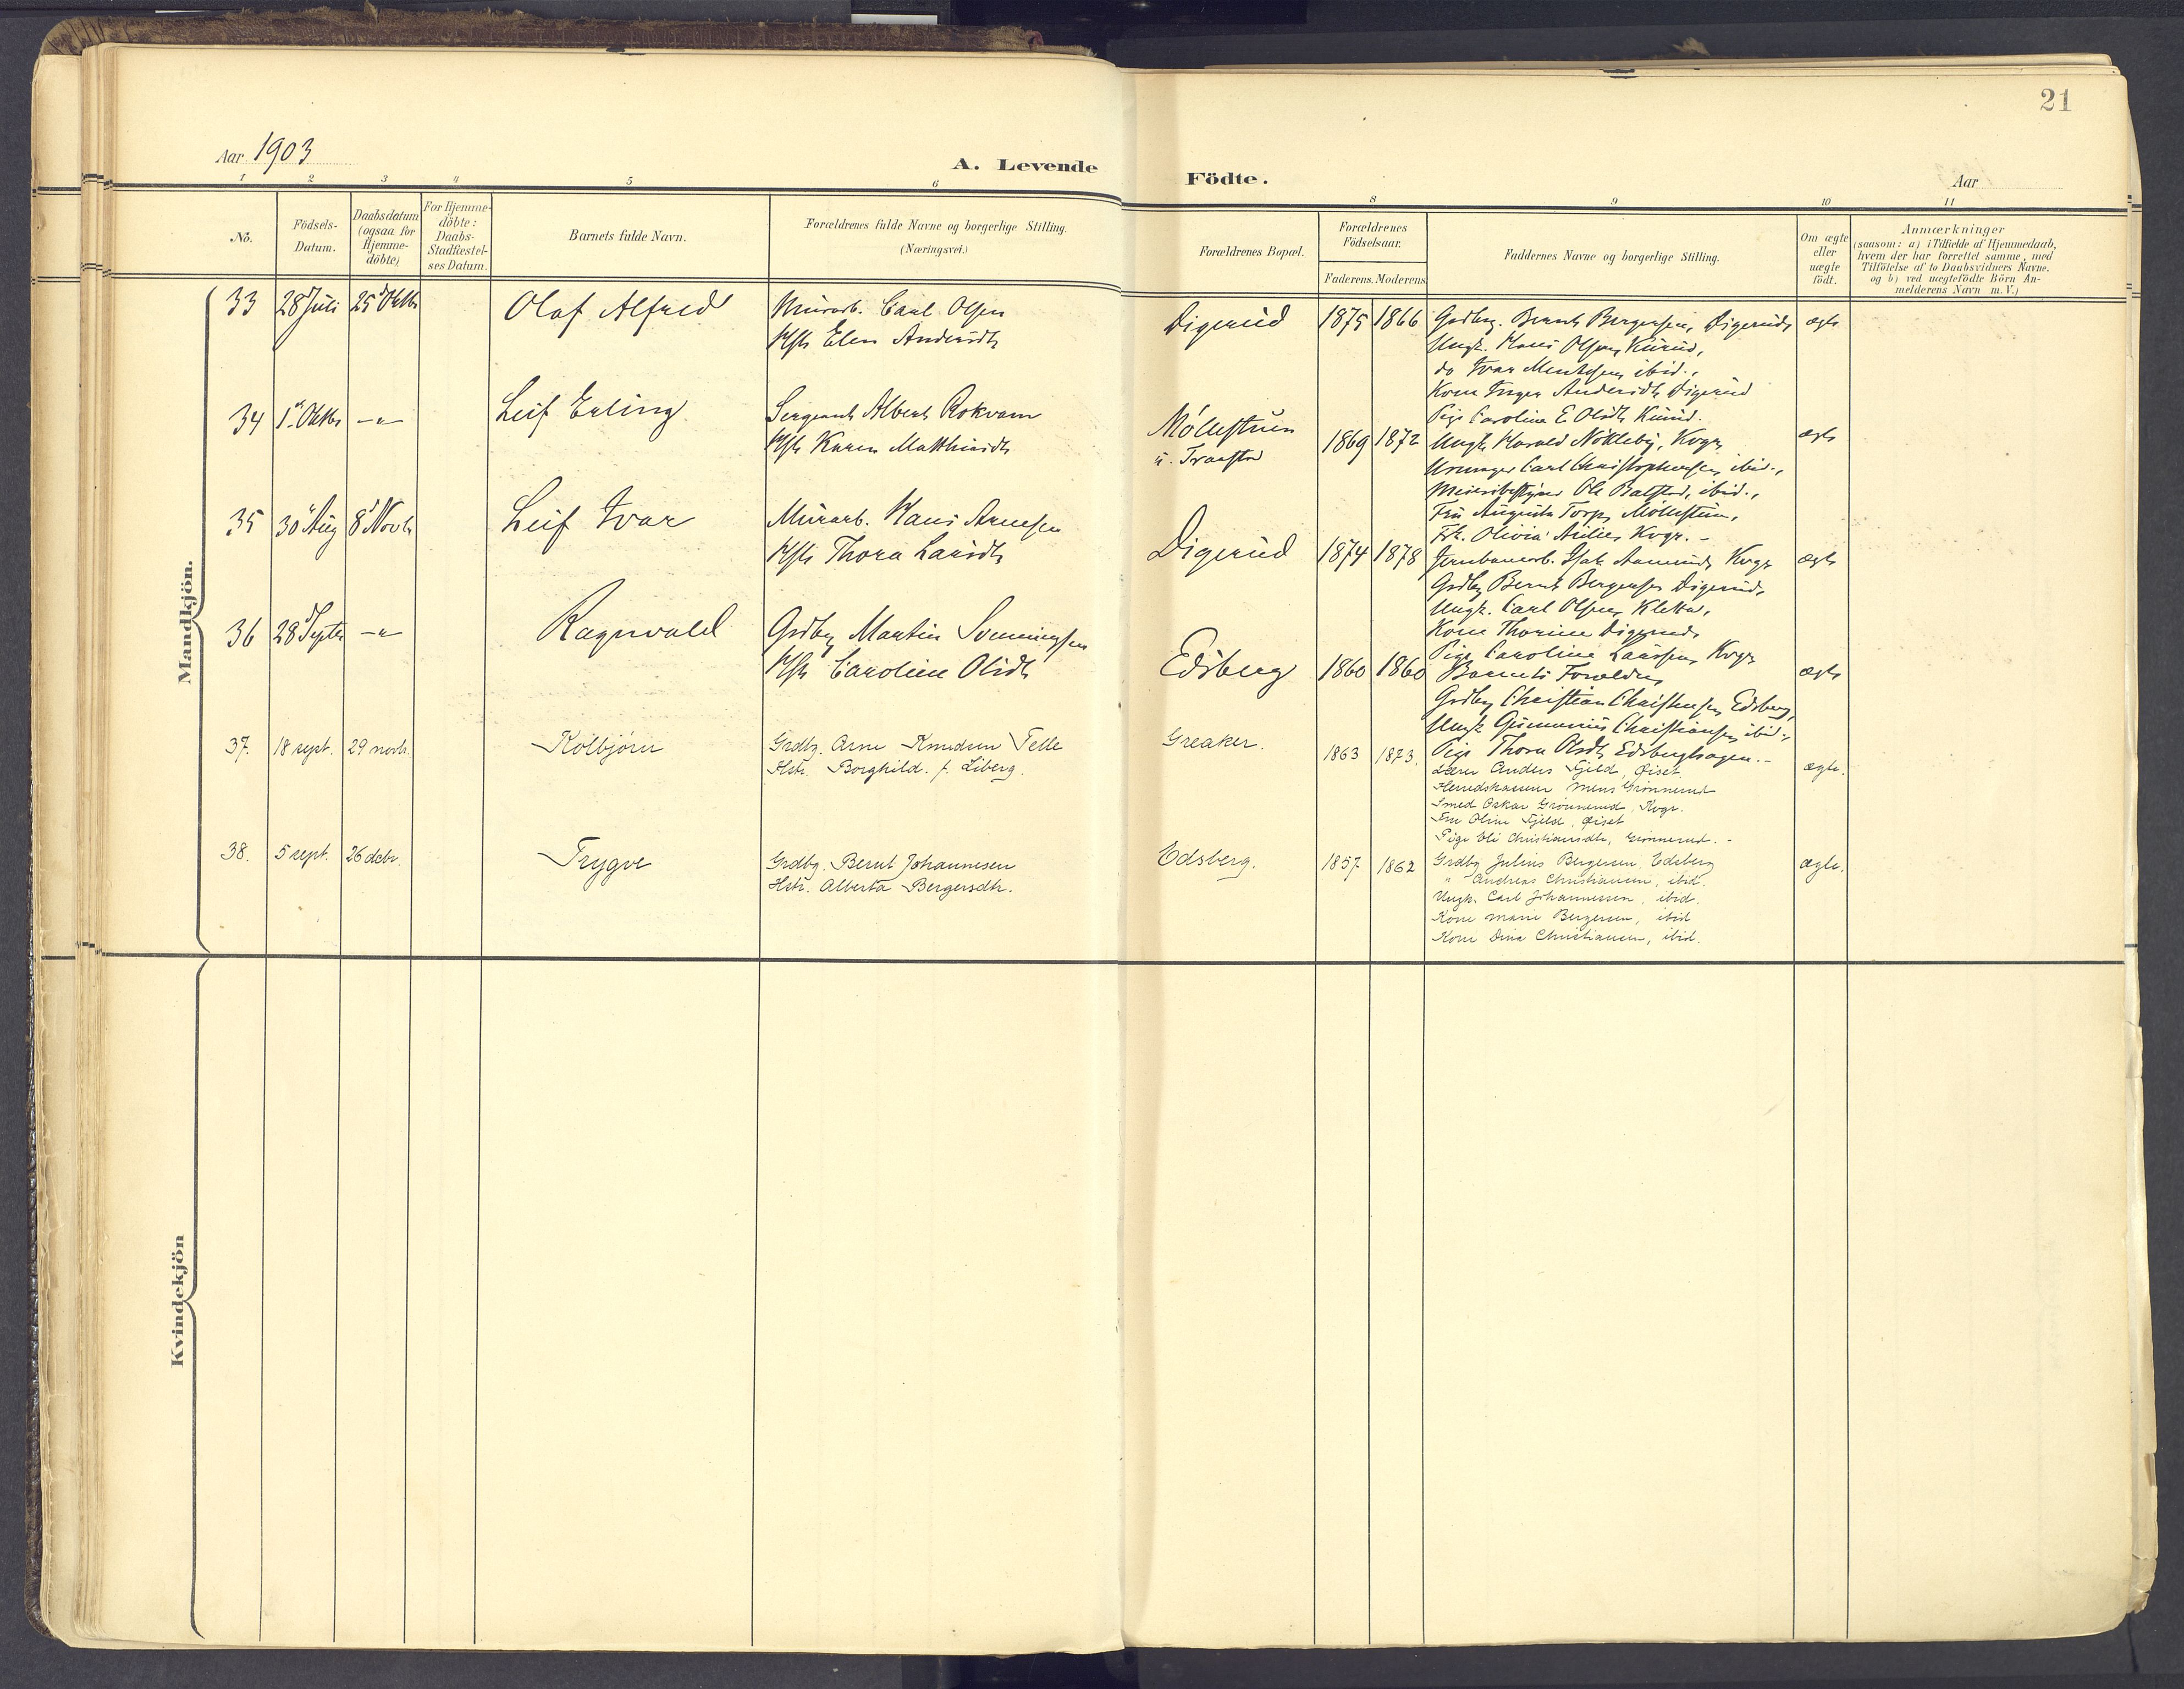 21
Aar 1903
A. Levende
Födte.
Aar
1 2 3 4 5 6 8 9 10 11
No.
Födsels-
Datum.
Daabsdatum
(ogsaa for
Hjemme-
döbte)
For Hjemme-
döbte:
Daabs-
Stadfæstel-
ses Datum.
Barnets fulde Navn.
Forældrenes fulde Navne og borgerlige Stilling.
(Næringsvei.)
Forældrenes Bopæl.
Forældrenes
Födselsaar.
Faderens. Moderens
Faddernes Navne og borgerlige Stilling.
Om ægte
eller
uægte
födt.
Anmærkninger
(saasom: a) i Tilfælde af Hjemmedaab,
hvem der har forrettet samme, med
Tilföielse af to Daabsvidners Navne.
og b) ved uægtefödte Börn An-
melderens Navn m. V.)
Mandkjön.
33 28 Juli 25 Oktbr Olaf Alfred
Murarb. Carl Olsen
Hstr Elen Andersdtr
Digerud 1875 1866
Grdbg. Bernt Bergersen, Digerud,
Ungk. Hans Olsen,
do Ivar ibid.,
Kone Inger Andersdtr Digerud
Pige Caroline E. Olsdtr
ægte
34 1 Oktbr —"— Leif Erling
Sergeant Albert Rokvam
Hstr Karen Matthisdtr
Möllestuen
u. Traastad
1869 1872
Ungk. Harald Nökleby, Kvgr.
Carl Christophersen, ibid.,
Ole ibid.,
Fru Augusta Torp, Möllestuen,
Frk. Olivia Kvgr. -
ægte
35 30 Aug 8 Novbr Leif Ivar
Murarb. Hans Arnesen
Hstr Thora Larsdtr
Digerud 1874 1878
Jernbanearb. Isak Aamund, Kvgr
Grdbg Bernt Bergersen Digerud,
Ungk. Carl Olsen, Kletta,
Kone Thorine Digerud,
Pige Caroline Larssen, Kvgr
ægte
36 28 Septbr —"— Ragnvald
Grdbg Martin Svenningsen
Hstr Caroline Olsdtr
Edsberg 1860 1860
Barnets Forældre,
Grdbg Christian Christensen, Edsberg,
Ungk. Christiansen, ibid.,
Pige Thora Olsdtr, Edsberghagen. -
ægte
37. 18 sept. 29 novbr. Kolbjörn
Grdbg. Arne Knudsen Telle
Hstr. Borghild f. Liberg.
Greaker. 1863 1873.
Lærer Anders Fjeld, Öiset
Herredskasserer Mens Grönnerud
Smed Oskar Grönnerud, Kvgr.
Fru Oline Fjeld, Öiset
Pige Eli Christiansdtr, Grönnerud. -
ægte.
38. 5 sept. 26 decbr. Trygve
Grdbg. Bernt Johannesen
Hstr. Alberta Bergersdtr.
Edsberg. 1857 1862
Grdbg Julius Bergersen, Edsberg
" Andreas Christiansen, ibid.
Ungk. Carl Johannessen, ibid.
Kone Marie Bergersen, ibid
Kone Dina Christiansen, ibid.
ægte.
Kvindekjön